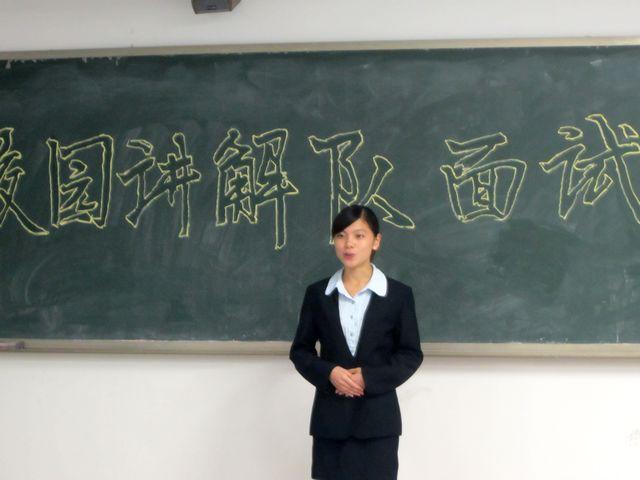 校园讲解队面试